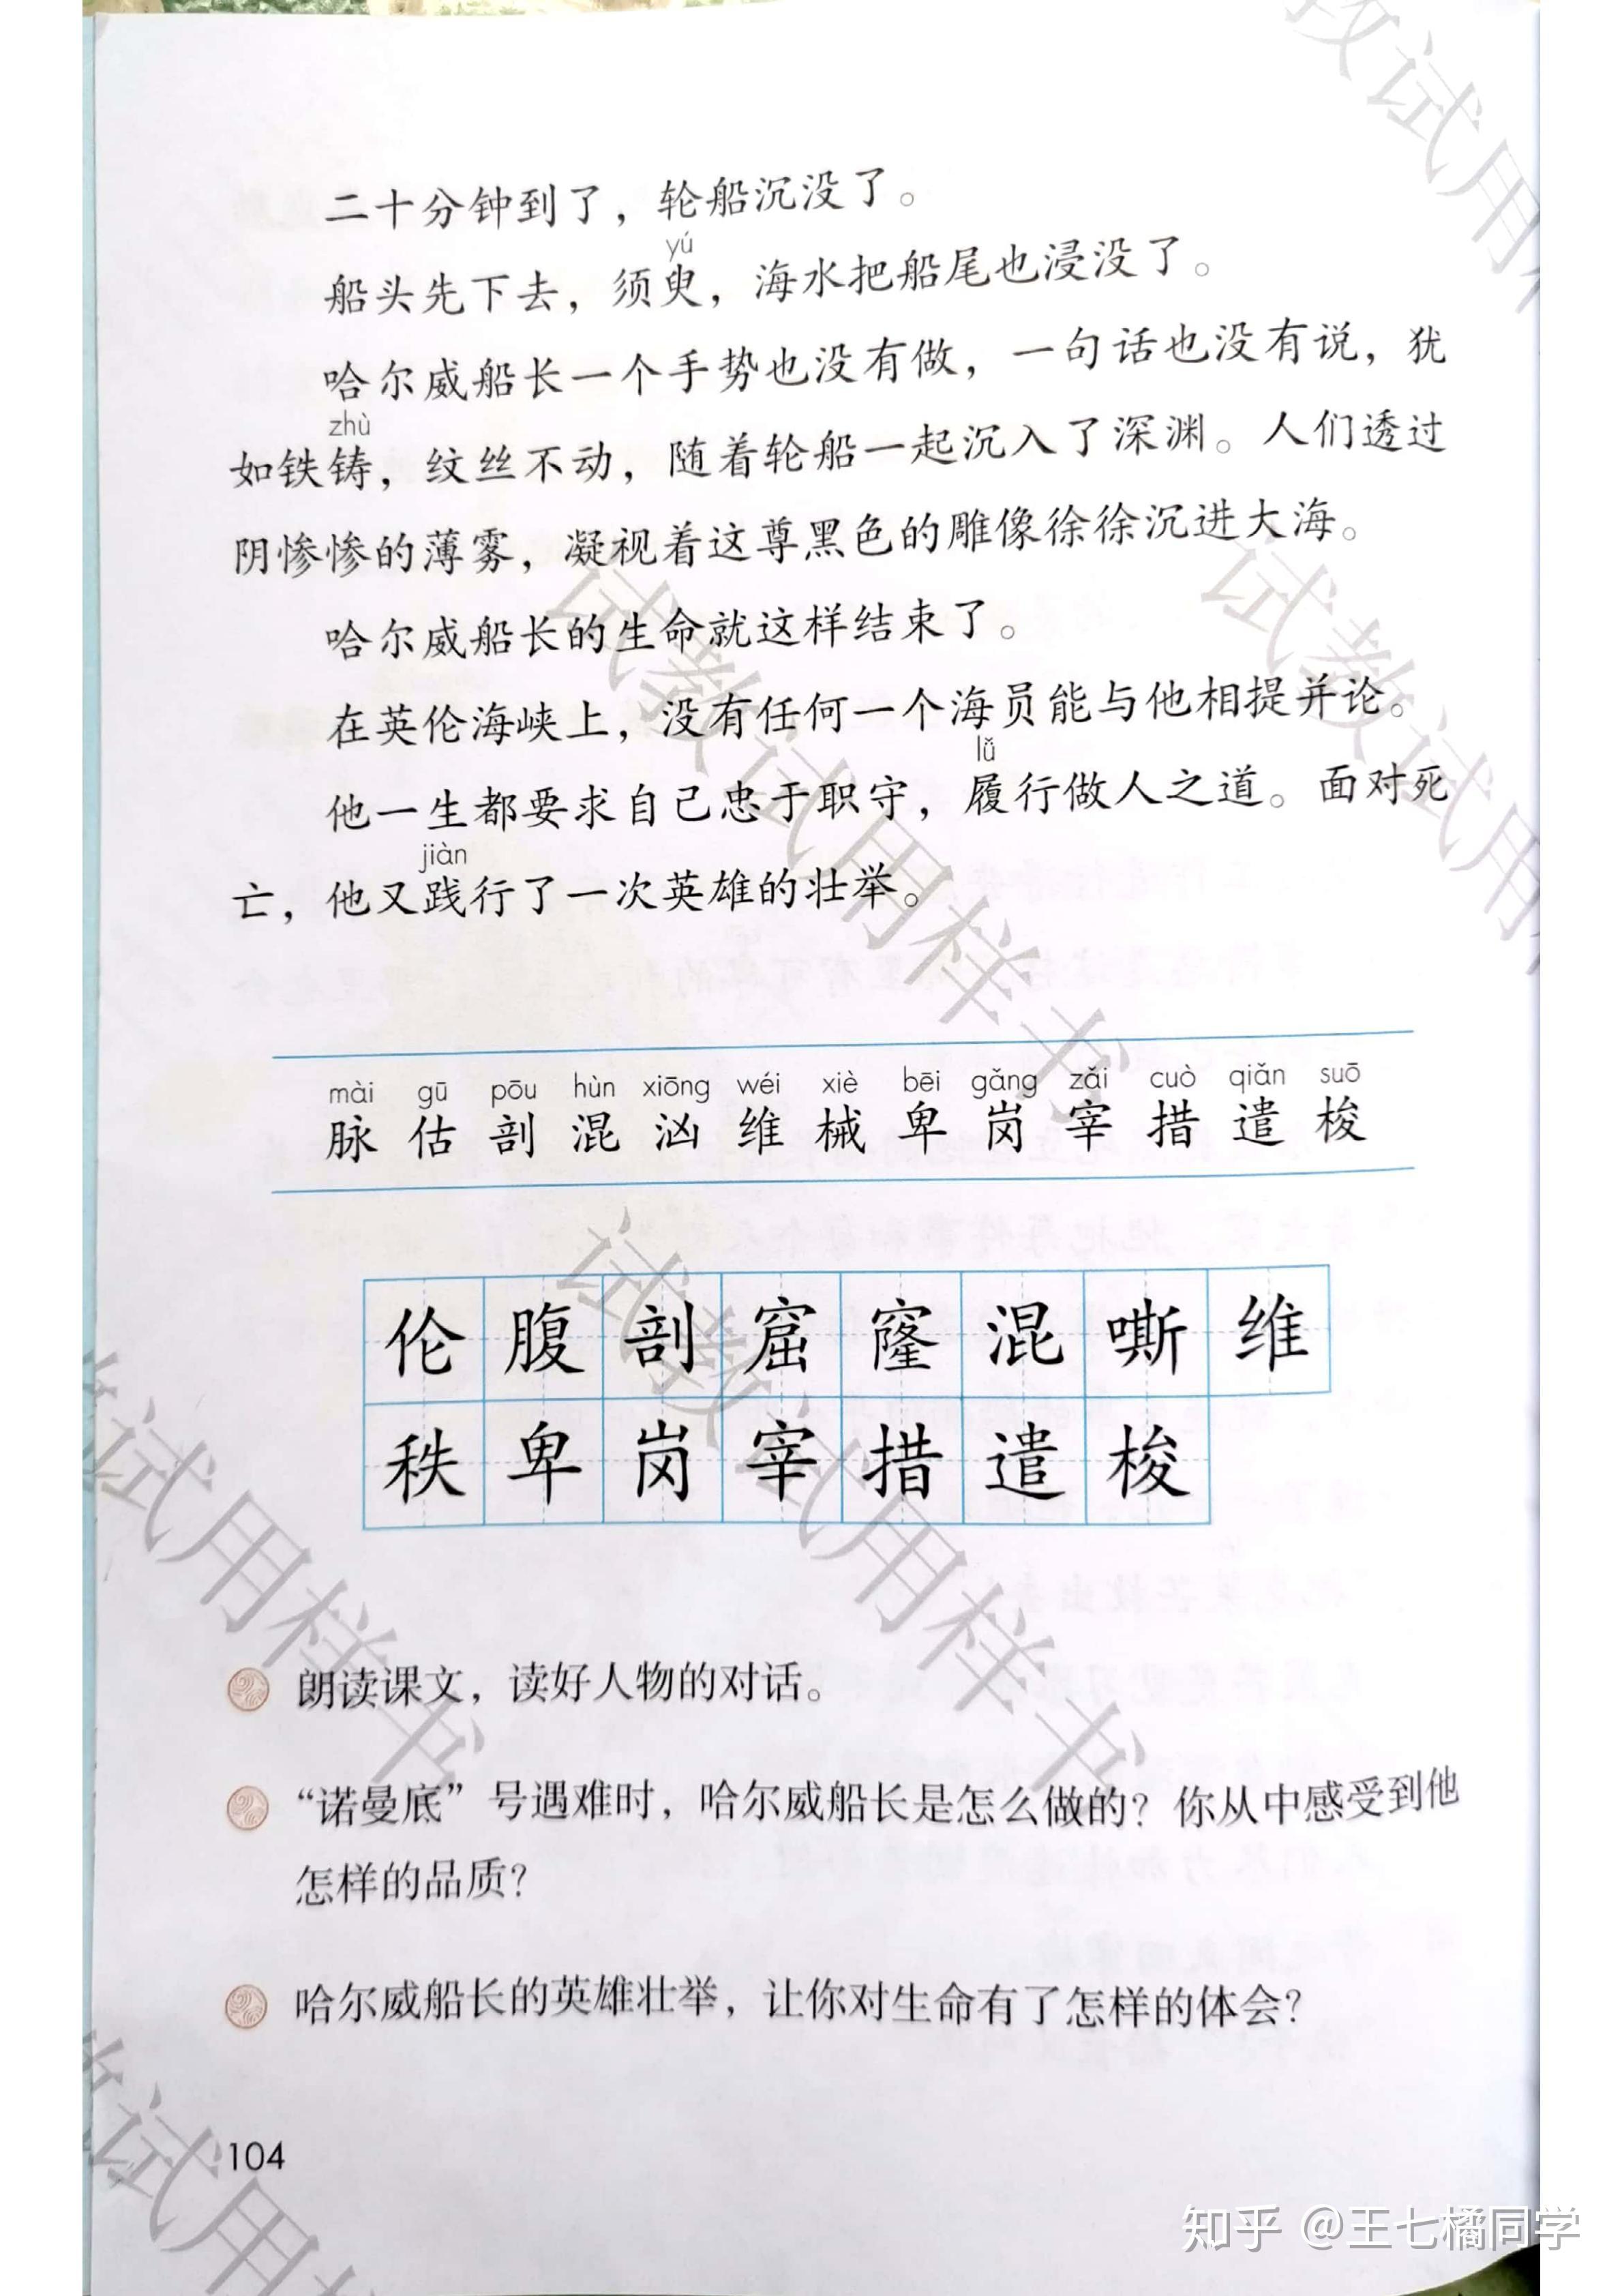 二十分钟到了，轮船沉没了。
yú
船头先下去，须臾，海水把船尾也浸没了。
哈尔威船长一个手势也没有做，一句话也没有说，犹
zhù
如铁铸，纹丝不动，随着轮船一起沉入了深渊。人们透过
阴惨惨的薄雾，凝视着这尊黑色的雕像徐徐沉进大海。
哈尔威船长的生命就这样结束了。
在英伦海峡上，没有任何一个海员能与他相提并论。
lǚ
他一生都要求自己忠于职守，履行做人之道。面对死
jiàn
亡，他又践行了一次英雄的壮举。
mài gū pōu hùn xiōng wéi xiè bēi gǎng zǎi cuò qiǎn suō
脉 估 剖 混 汹 维 械 卑 岗 宰 措 遣 梭
伦 腹 剖 窟 窿 混 嘶 维
秩 卑 岗 宰 措 遣 梭
朗读课文，读好人物的对话。
“诺曼底”号遇难时，哈尔威船长是怎么做的？你从中感受到他
怎样的品质？
哈尔威船长的英雄壮举，让你对生命有了怎样的体会？
104
试教试用样书
试教试用样书
知乎 @王七橘同学